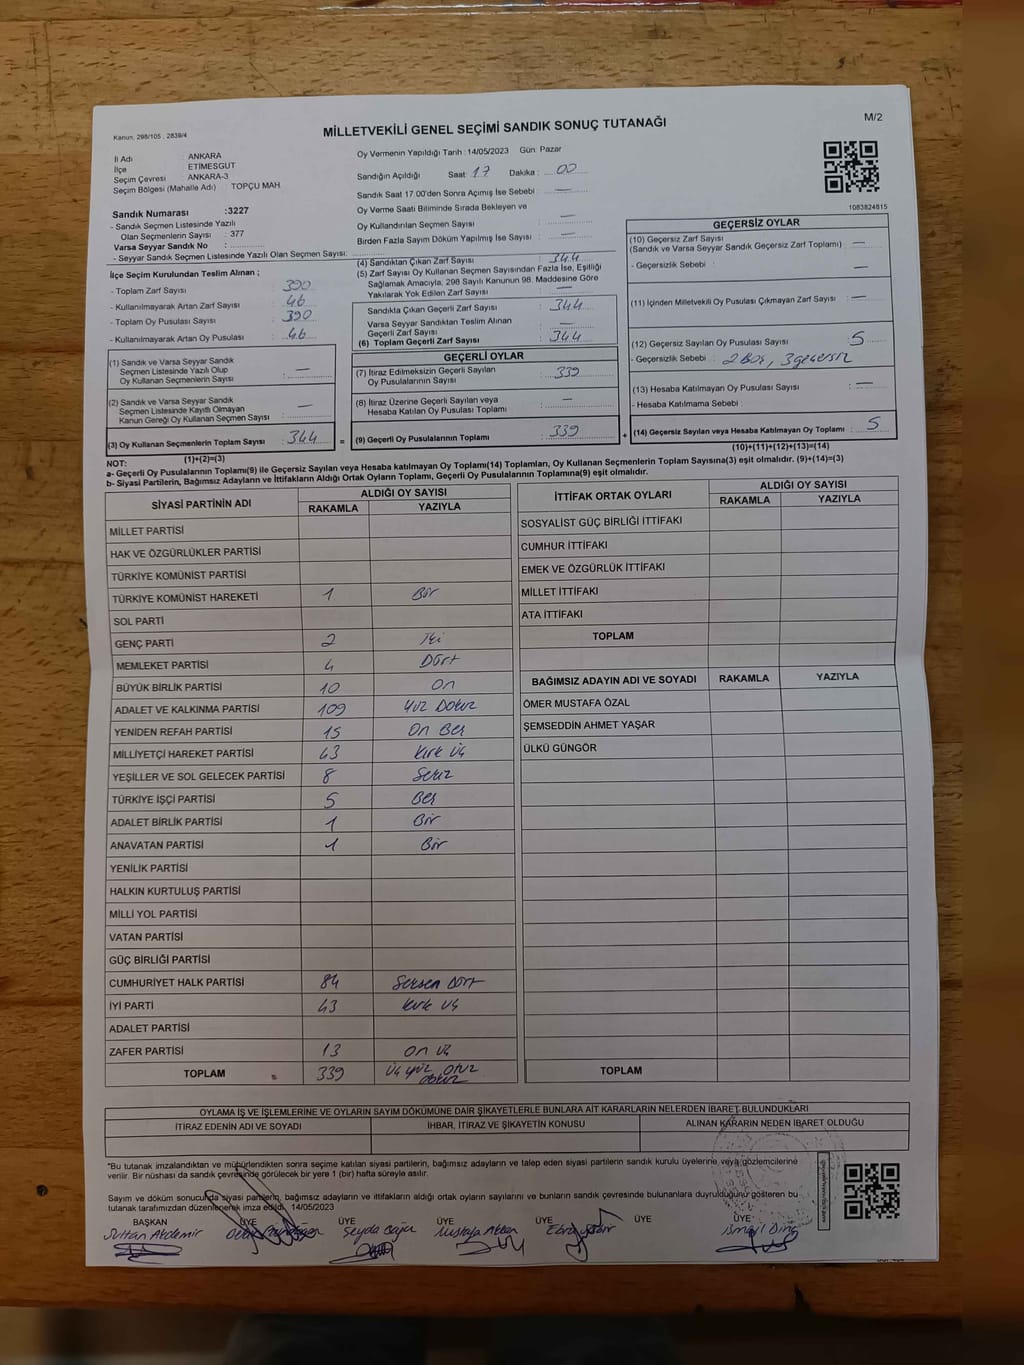 Kanun, 298/105 ; 2839/4
MİLLETVEKİLİ GENEL SEÇİMİ SANDIK SONUÇ TUTANAĞI
M/2
İl Adı : ANKARA
İlçe : ETİMESGUT
Seçim Çevresi : ANKARA-3
Seçim Bölgesi (Mahalle Adı) : TOPÇU MAH
Sandık Numarası :3227
- Sandık Seçmen Listesinde Yazılı
Olan Seçmenlerin Sayısı : 377
Varsa Seyyar Sandık No :
- Seyyar Sandık Seçmen Listesinde Yazılı Olan Seçmen Sayısı:
Oy Vermenin Yapıldığı Tarih : 14/05/2023 Gün: Pazar
Sandığın Açıldığı Saat 17 Dakika : 00
Sandık Saat 17:00'den Sonra Açımış İse Sebebi : —
Oy Verme Saati Bitiminde Sırada Bekleyen ve
Oy Kullandırılan Seçmen Sayısı : —
Birden Fazla Sayım Döküm Yapılmış İse Sayısı : —
1083824815
İlçe Seçim Kurulundan Teslim Alınan ;
- Toplam Zarf Sayısı : 390
- Kullanılmayarak Artan Zarf Sayısı : 46
- Toplam Oy Pusulası Sayısı : 390
- Kullanılmayarak Artan Oy Pusulası : 46
(1) Sandık ve Varsa Seyyar Sandık
Seçmen Listesinde Yazılı Olup
Oy Kullanan Seçmenlerin Sayısı : —
(2) Sandık ve Varsa Seyyar Sandık
Seçmen Listesinde Kayıtlı Olmayan
Kanun Gereği Oy Kullanan Seçmen Sayısı : —
(3) Oy Kullanan Seçmenlerin Toplam Sayısı : 344 =
(1)+(2)=(3)
(4) Sandıktan Çıkan Zarf Sayısı : 344
(5) Zarf Sayısı Oy Kullanan Seçmen Sayısından Fazla İse, Eşitliği
Sağlamak Amacıyla, 298 Sayılı Kanunun 98. Maddesine Göre
Yakılarak Yok Edilen Zarf Sayısı : —
Sandıkla Çıkan Geçerli Zarf Sayısı : 344
Varsa Seyyar Sandıktan Teslim Alınan
Geçerli Zarf Sayısı : —
(6) Toplam Geçerli Zarf Sayısı : 344
GEÇERLİ OYLAR
(7) İtiraz Edilmeksizin Geçerli Sayılan
Oy Pusulalarının Sayısı : 339
(8) İtiraz Üzerine Geçerli Sayılan veya
Hesaba Katılan Oy Pusulası Toplamı : —
(9) Geçerli Oy Pusulalarının Toplamı : 339 +
GEÇERSİZ OYLAR
(10) Geçersiz Zarf Sayısı
(Sandık ve Varsa Seyyar Sandık Geçersiz Zarf Toplamı) : —
- Geçersizlik Sebebi : —
(11) İçinden Milletvekili Oy Pusulası Çıkmayan Zarf Sayısı : —
(12) Geçersiz Sayılan Oy Pusulası Sayısı : 5
- Geçersizlik Sebebi : 2 Boş, 3 geçersiz
(13) Hesaba Katılmayan Oy Pusulası Sayısı : —
- Hesaba Katılmama Sebebi :
(14) Geçersiz Sayılan veya Hesaba Katılmayan Oy Toplamı : 5
(10)+(11)+(12)+(13)=(14)
NOT:
a- Geçerli Oy Pusulalarının Toplamı(9) ile Geçersiz Sayılan veya Hesaba katılmayan Oy Toplamı(14) Toplamları, Oy Kullanan Seçmenlerin Toplam Sayısına(3) eşit olmalıdır. (9)+(14)=(3)
b- Siyasi Partilerin, Bağımsız Adayların ve İttifakların Aldığı Ortak Oyların Toplamı, Geçerli Oy Pusulalarının Toplamına(9) eşit olmalıdır.
SİYASİ PARTİNİN ADI ALDIĞI OY SAYISI
RAKAMLA YAZIYLA
MİLLET PARTİSİ
HAK VE ÖZGÜRLÜKLER PARTİSİ
TÜRKİYE KOMÜNİST PARTİSİ
TÜRKİYE KOMÜNİST HAREKETİ 1 Bir
SOL PARTİ
GENÇ PARTİ 2 İki
MEMLEKET PARTİSİ 4 Dört
BÜYÜK BİRLİK PARTİSİ 10 On
ADALET VE KALKINMA PARTİSİ 109 Yüz Dokuz
YENİDEN REFAH PARTİSİ 15 On Beş
MİLLİYETÇİ HAREKET PARTİSİ 43 Kırk Üç
YEŞİLLER VE SOL GELECEK PARTİSİ 8 Sekiz
TÜRKİYE İŞÇİ PARTİSİ 5 Beş
ADALET BİRLİK PARTİSİ 1 Bir
ANAVATAN PARTİSİ 1 Bir
YENİLİK PARTİSİ
HALKIN KURTULUŞ PARTİSİ
MİLLİ YOL PARTİSİ
VATAN PARTİSİ
GÜÇ BİRLİĞİ PARTİSİ
CUMHURİYET HALK PARTİSİ 84 Seksen Dört
İYİ PARTİ 43 Kırk Üç
ADALET PARTİSİ
ZAFER PARTİSİ 13 On Üç
TOPLAM 339 Üç yüz otuz dokuz
İTTİFAK ORTAK OYLARI ALDIĞI OY SAYISI
RAKAMLA YAZIYLA
SOSYALİST GÜÇ BİRLİĞİ İTTİFAKI
CUMHUR İTTİFAKI
EMEK VE ÖZGÜRLÜK İTTİFAKI
MİLLET İTTİFAKI
ATA İTTİFAKI
TOPLAM
BAĞIMSIZ ADAYIN ADI VE SOYADI RAKAMLA YAZIYLA
ÖMER MUSTAFA ÖZAL
ŞEMSEDDİN AHMET YAŞAR
ÜLKÜ GÜNGÖR
TOPLAM
OYLAMA İŞ VE İŞLEMLERİNE VE OYLARIN SAYIM DÖKÜMÜNE DAİR ŞİKAYETLERLE BUNLARA AİT KARARLARIN NELERDEN İBARET BULUNDUKLARI
İTİRAZ EDENİN ADI VE SOYADI İHBAR, İTİRAZ VE ŞİKAYETİN KONUSU ALINAN KARARIN NEDEN İBARET OLDUĞU
"Bu tutanak imzalandıktan ve mühürlendikten sonra seçime katılan siyasi partilerin, bağımsız adayların ve talep eden siyasi partilerin sandık kurulu üyelerine veya gözlemcilerine
verilir. Bir nüshası da sandık çevresinde görülecek bir yere 1 (bir) hafta süreyle asılır.
Sayım ve döküm sonucunda siyasi partilerin, bağımsız adayların ve ittifakların aldığı ortak oyların sayılarını ve bunların sandık çevresinde bulunanlara duyrulduğunu gösteren bu
tutanak tarafımızdan düzenlenerek imza edildi. 14/05/2023
BAŞKAN ÜYE ÜYE ÜYE ÜYE ÜYE ÜYE
Sultan Akdemir Mustafa İsmail Dinç